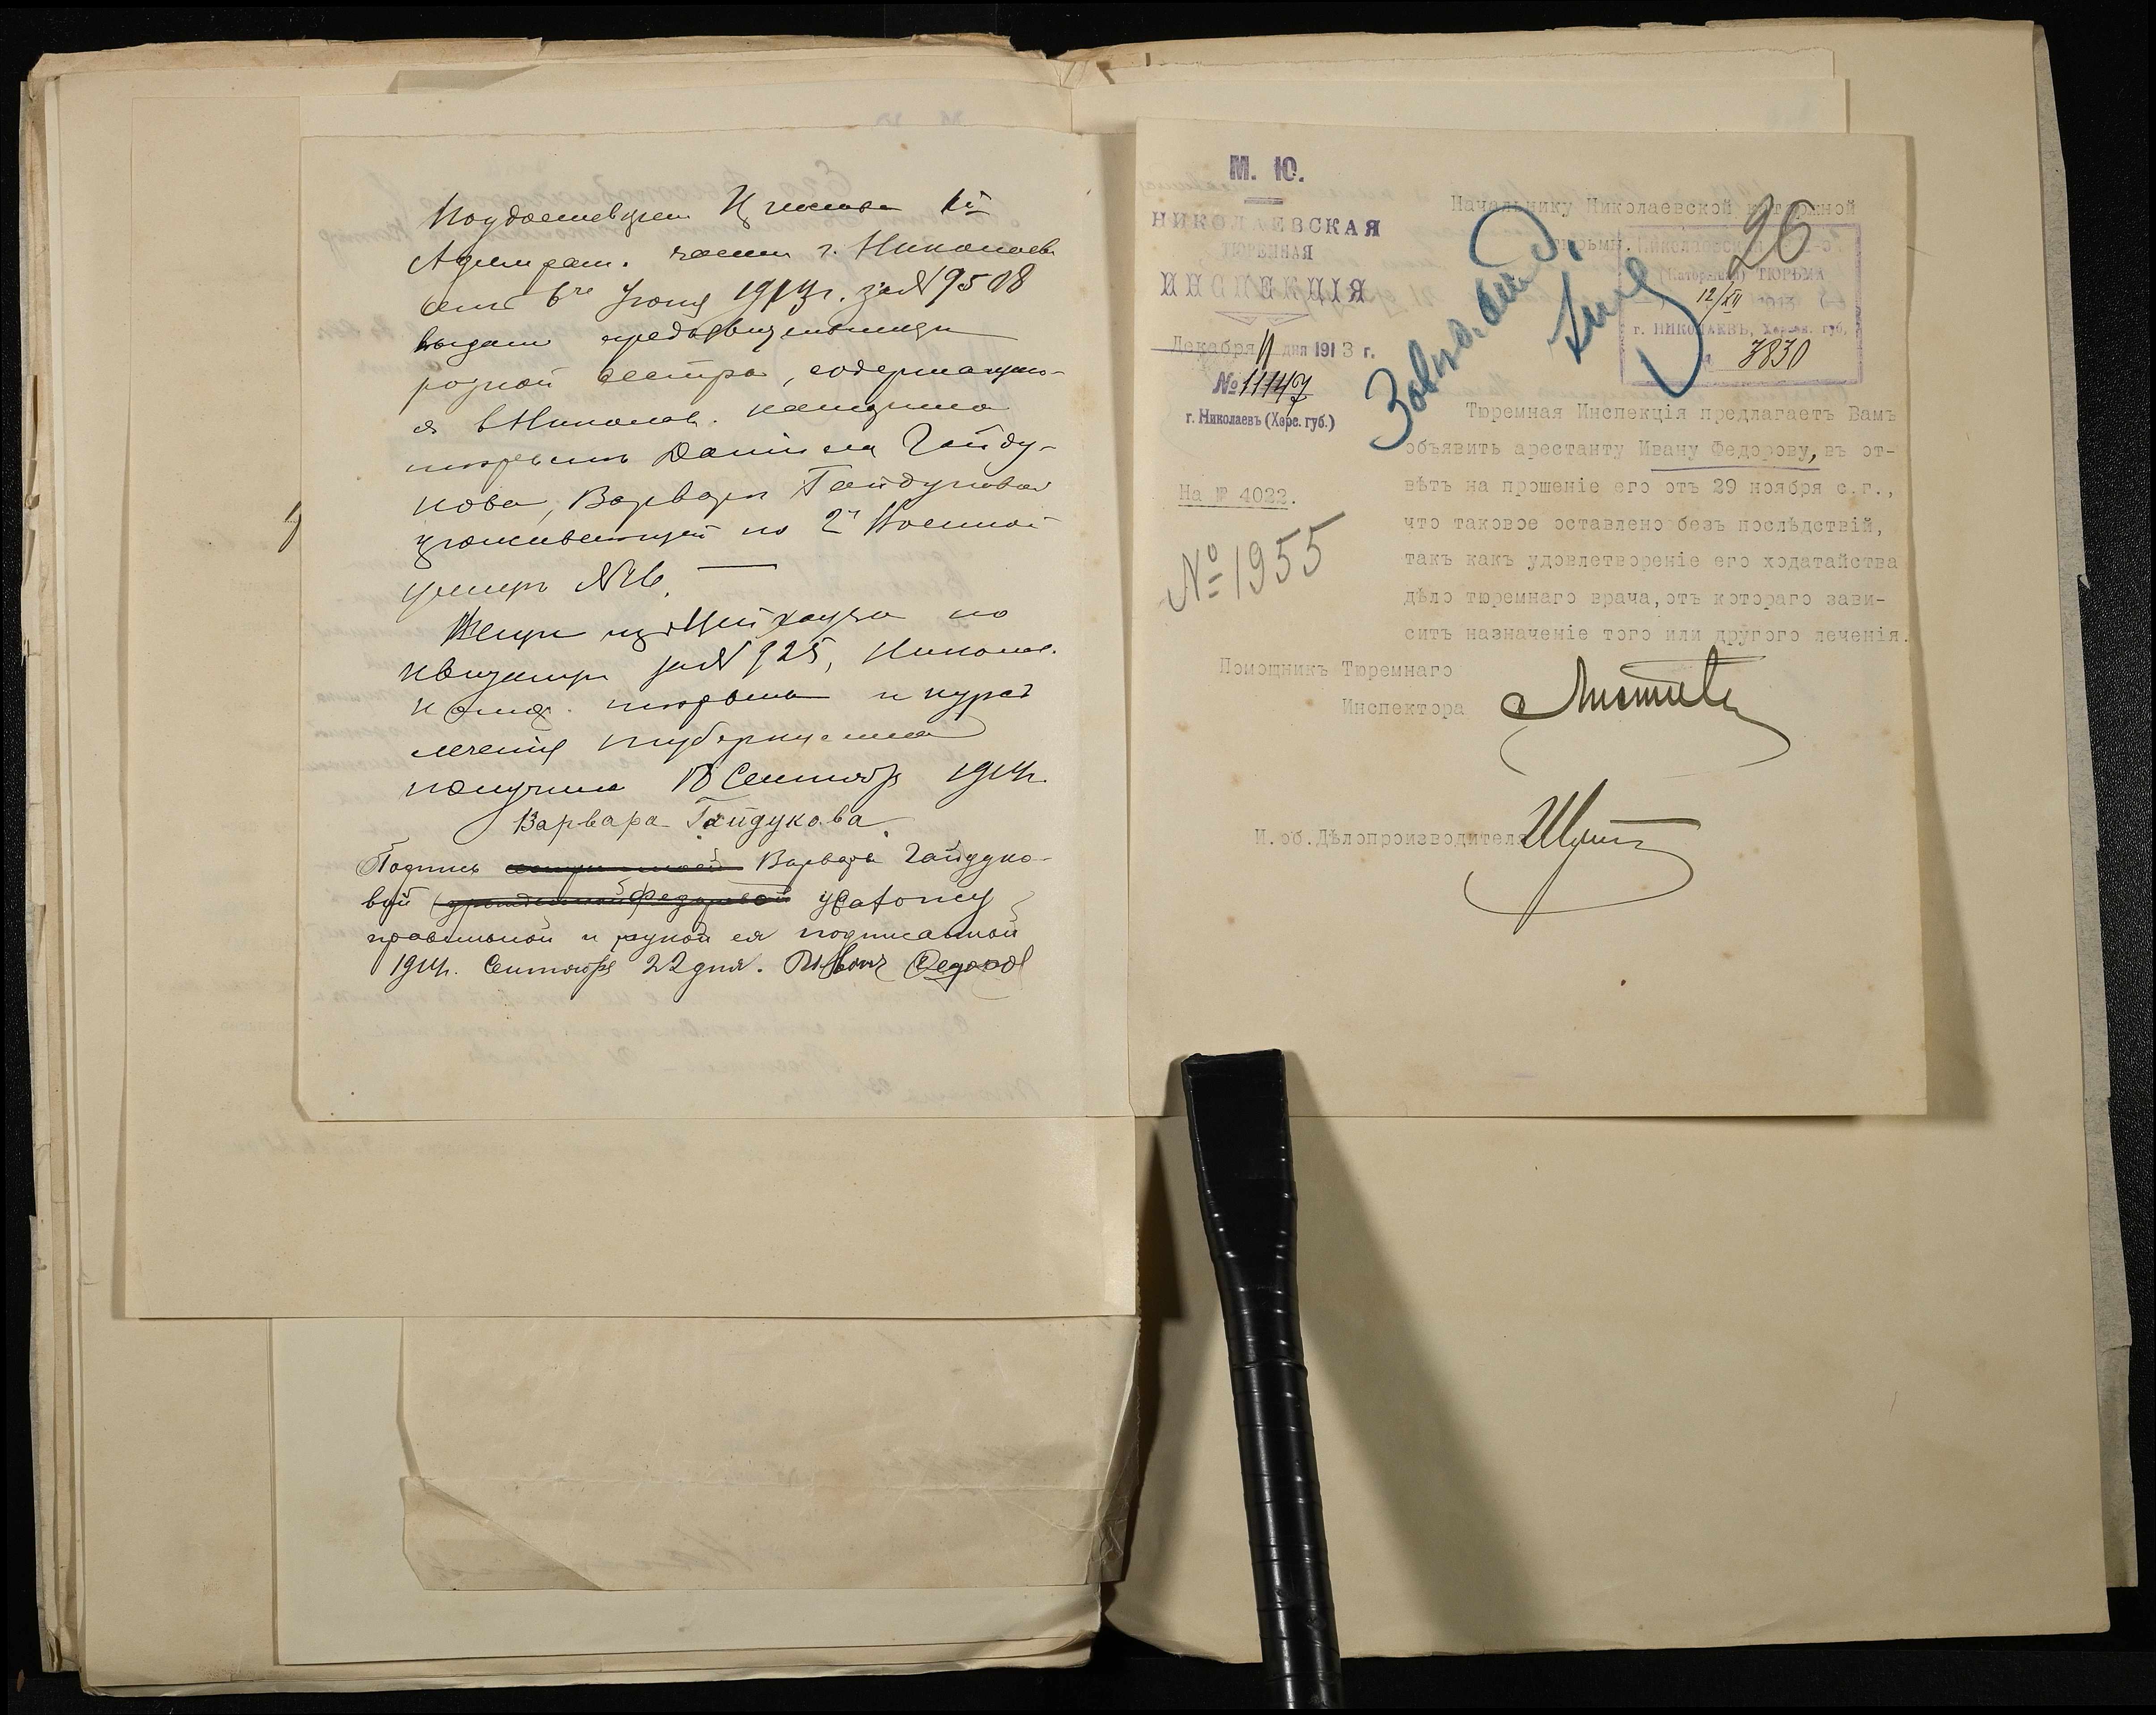 По удостоверению Пристава 1й
Адмирал. части г. Николаева
отъ 6го Іюня 1914г. за № 9508
выдано предъявительница
родной сестра, содержащаго-
ся в Николаев. каторжно
тюрьмѣ Даніила Гайду-
кова, Варвары Гайдуковой
проживающей по 2й Военной
улицѣ №
Вещи изъ Цейхгауза по
квитанціи за № 925, Николаев.
каторж. тюрьмы и курса
леченія туберкулина
получила 18 Сентября 1914г.
Варвара Гайдукова.
Подпись Варвары Гайдуко-
вой удостов
правильной и рукой ея подписанной
1914г. Сентября 22 дня. Иванъ Федоров
М. Ю.
НИКОЛАЕВСКАЯ
ТЮРЕМНАЯ
ИНСПЕКЦІЯ
Декабря 11 дня 1913 г.
№ 11147
г. Николаевъ (Херс. губ.)
На № 4022.
№ 1955
Начальнику Николаевской каторжной
тюрьмы.
26
(Каторжная) ТЮРЬМА
12/XII 1913
г. НИКОЛАЕВЪ, Херсон. губ.
3830
Тюремная Инспекція предлагаетъ Вамъ
объявить арестанту Ивану Федорову, въ от-
вѣтъ на прошеніе его отъ 29 ноября с.г.,
что таковое оставлено безъ послѣдствій,
такъ какъ удовлетвореніе его ходатайства
дѣло тюремнаго врача, отъ котораго зави-
ситъ назначеніе того или другого леченія.
Помощникъ Тюремнаго
Инспектора
И. об. Дѣлопроизводителя